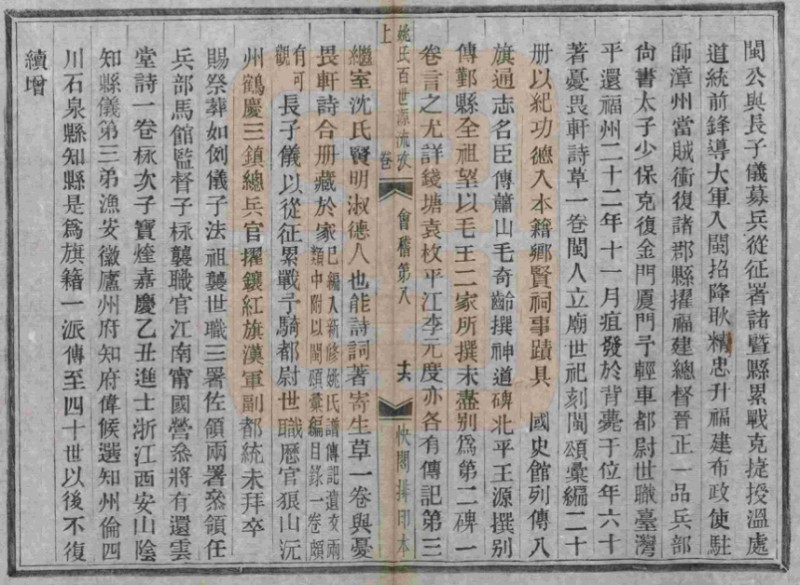 閩公與長子儀募兵從征署諸暨縣累戰克捷授溫處
道統前鋒導大軍入閩招降耿精忠升福建布政使駐
師漳州當賊衝復諸郡縣擢福建總督晉正一品兵部
尙書太子少保克復金門厦門予輕車都尉世職臺灣
平還福州二十二年十一月疽發於背薨于位年六十
著憂畏軒詩草一卷閩人立廟世祀刻閩頌彙編二十
册以紀功德入本籍鄉賢祠事蹟具 國史館列傳八
旗通志名臣傳蕭山毛奇齡撰神道碑北平王源撰別
傳鄞縣全祖望以毛王二家所撰未盡別爲第二碑一
卷言之尤詳錢塘袁枚平江李元度亦各有傳記第三
姚氏百世源流攷 卷上 會稽第八 十六 快閣排印本
繼室沈氏賢明淑德人也能詩詞著寄生草一卷與憂
畏軒詩合册藏於家已編入新修姚氏譜傳記遺文兩
類中附以閩頌彙編目錄一卷頗
有可觀 長子儀以從征累戰予騎都尉世職歷官狼山沅
州鶴慶三鎮總兵官擢鑲紅旗漢軍副都統未拜卒
賜祭葬如例儀子法祖襲世職三署佐領兩署叅領任
兵部馬館監督子秝襲職官江南甯國營叅將有還雲
堂詩一卷秝次子寶煃嘉慶乙丑進士浙江西安山陰
知縣儀第三弟漁安徽廬州府知府偉候選知州倫四
川石泉縣知縣是爲旗籍一派傳至四十世以後不復
續增